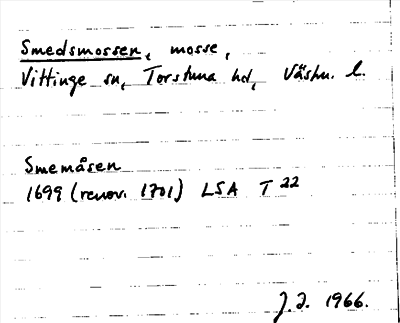 Smedsmossen, mosse,
Vittinge sn, Torstuna hd, Västm. l.
Smemåsen
1699 (renov. 1701) LSA T 22
J.I. 1966.